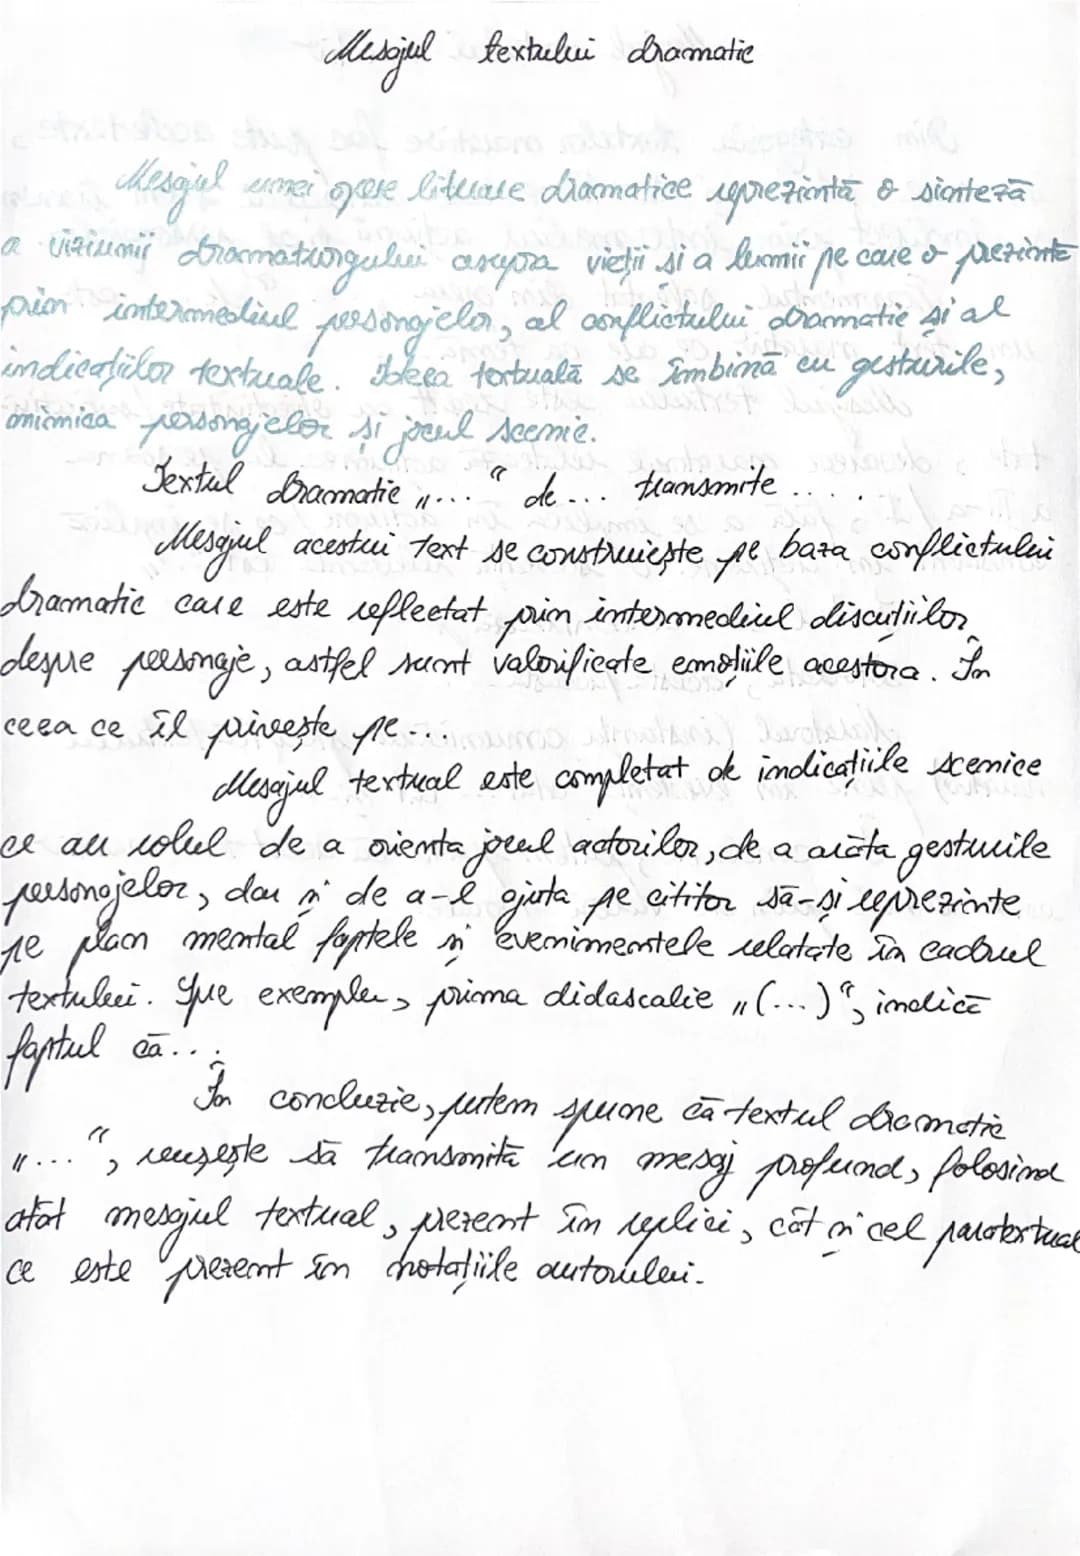 Mesajul textului dramatic
Mesajul unei opere literare dramatice reprezintă o sinteză
a viziunii dramaturgului asupra vieții și a lumii pe care o prezintă
prin intermediul personajelor, al conflictului dramatic și al
indicațiilor textuale. Ideea textuală se îmbină cu gesturile,
mimica personajelor și jocul scenic.
Textul dramatic „...“ de ... transmite .....
Mesajul acestui text se construiește pe baza conflictului
dramatic care este reflectat prin intermediul discuțiilor
despre personaje, astfel sunt valorificate emoțiile acestora. În
ceea ce îl privește pe ...
Mesajul textual este completat de indicațiile scenice
ce au rolul de a orienta jocul actorilor, de a arăta gesturile
personajelor, dar și de a-l ajuta pe cititor să-și reprezinte
pe plan mental faptele și evenimentele relatate în cadrul
textului. Spre exemplu, prima didascalie „(...)“, indică
faptul că...
În concluzie, putem spune că textul dramatic
„...“, reușește să transmită un mesaj profund, folosind
atât mesajul textual, prezent în replici, cât și cel paratextual
ce este prezent în notațiile autorului.